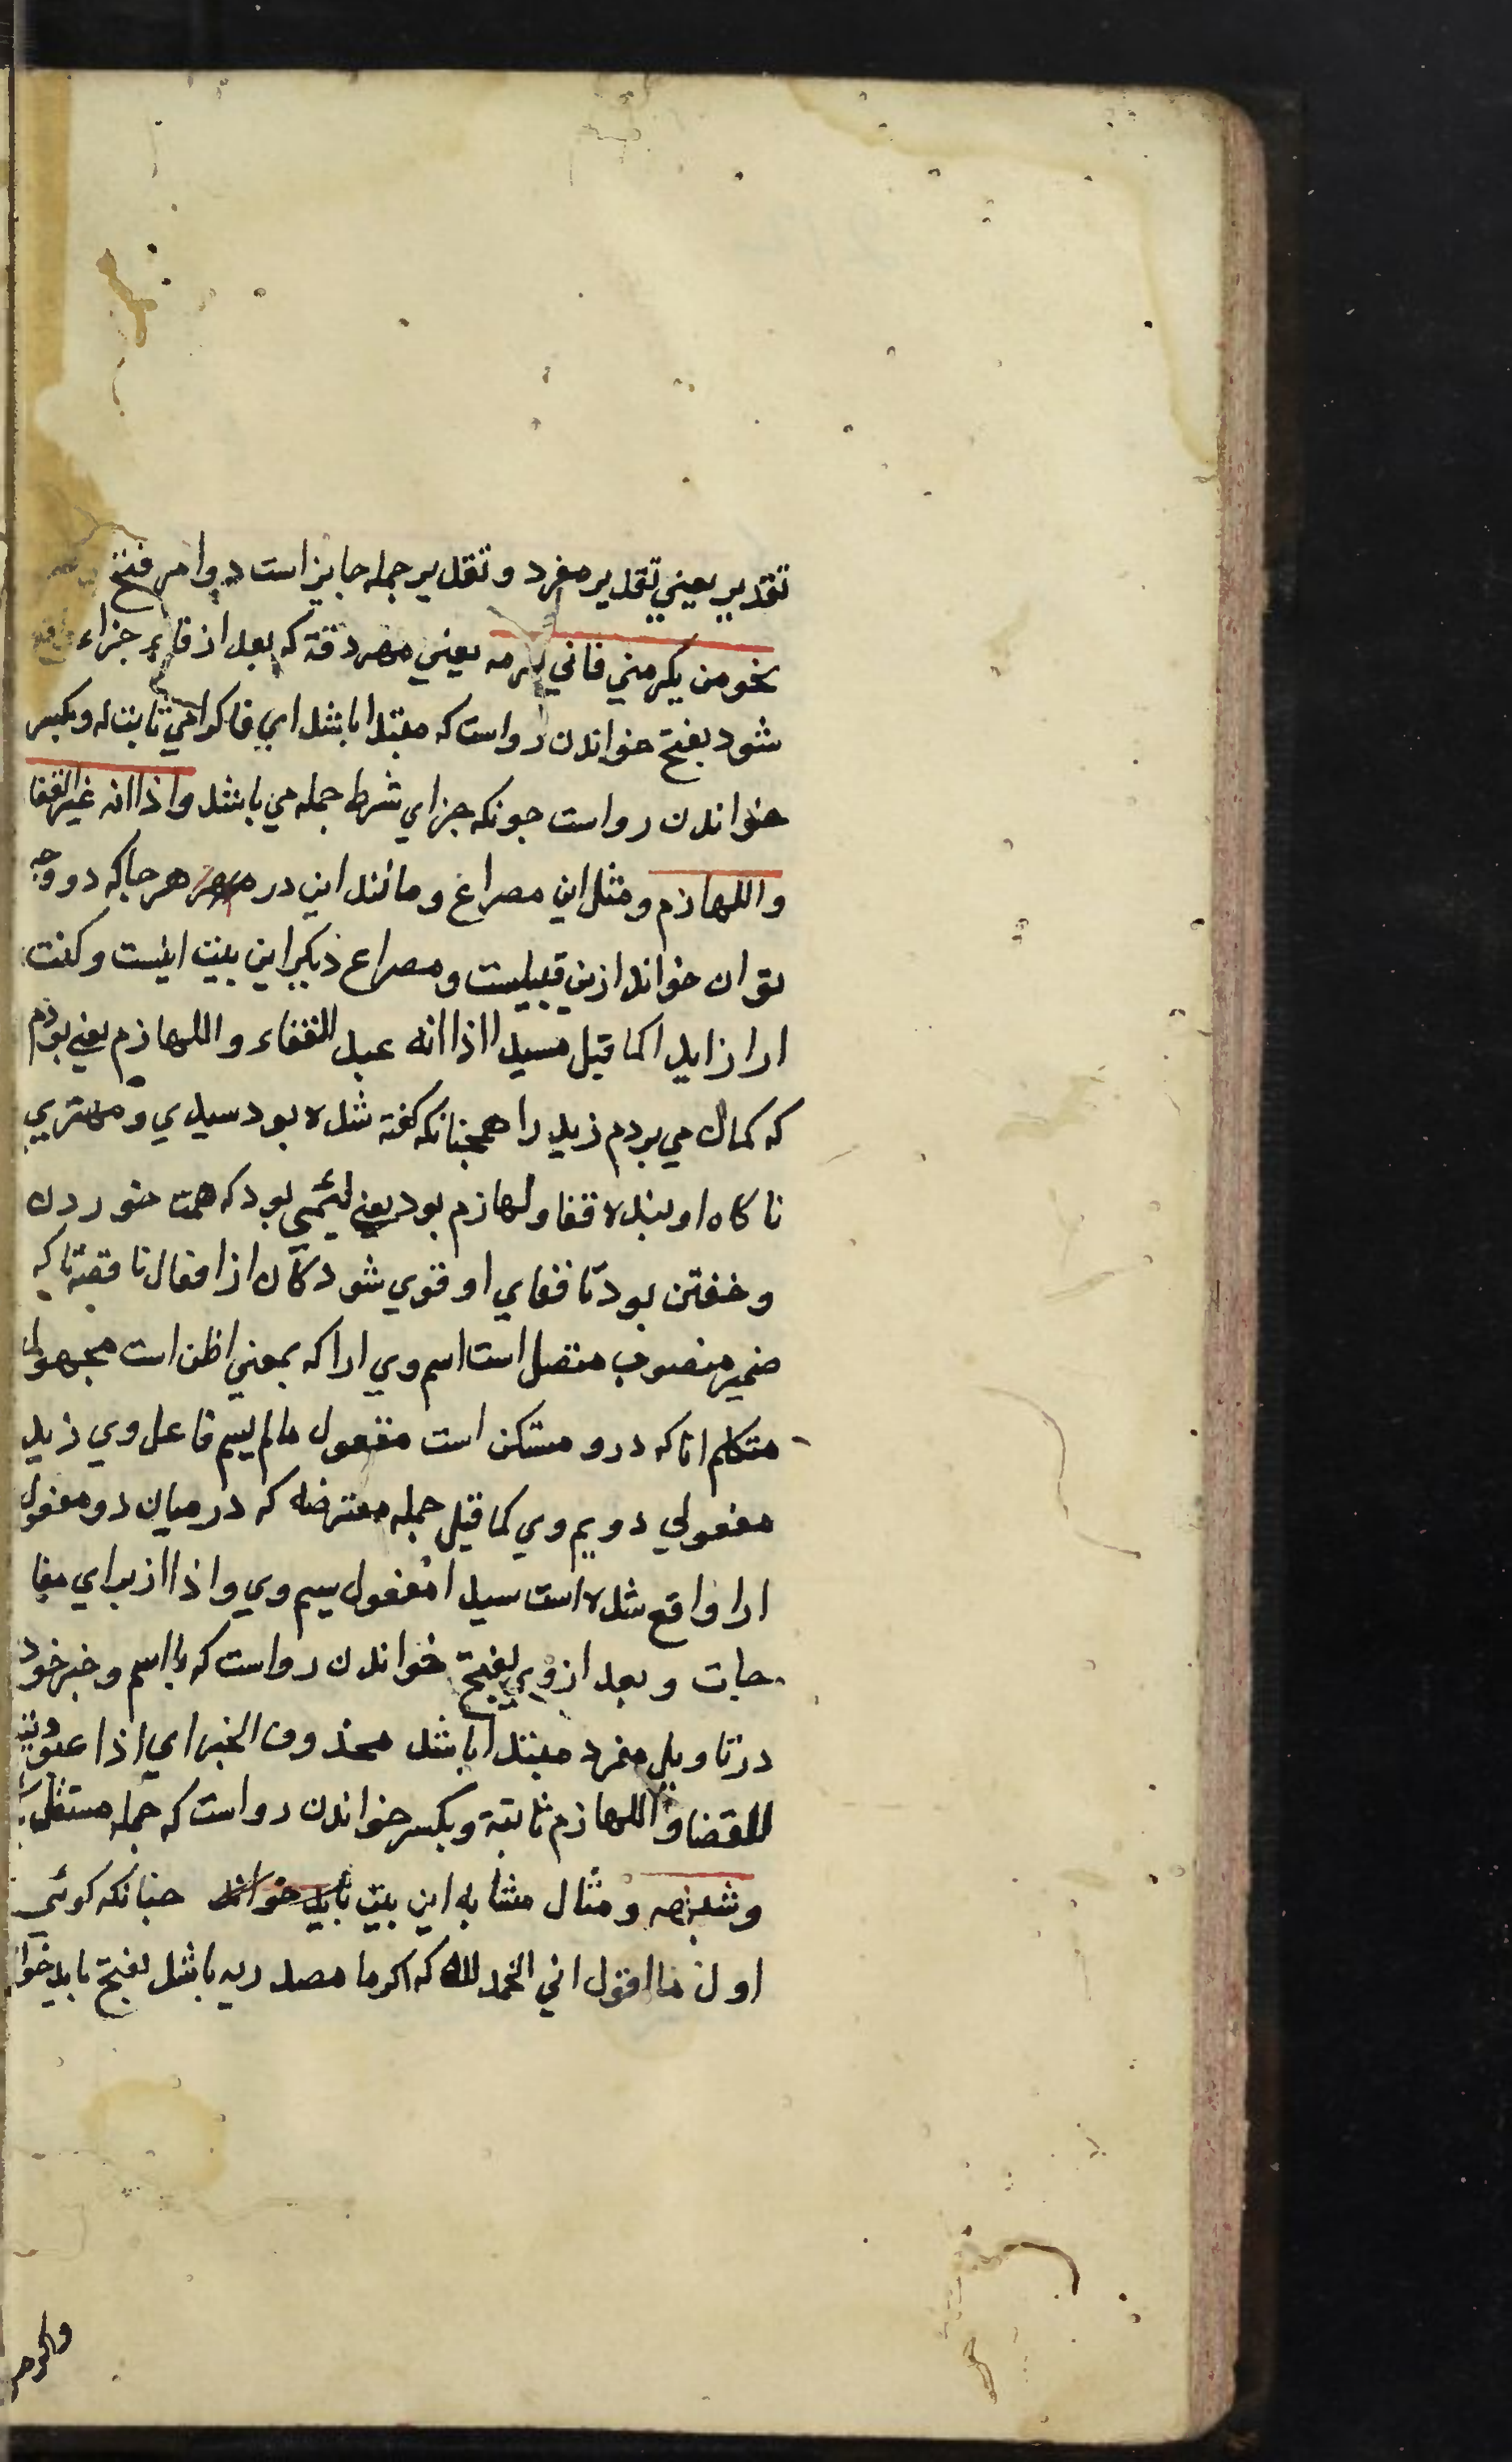 تقدير يعني تقدير مفرد و تقدير جمله جايز است دوامر فتح
نحو من يكرمني فاني اكرمه يعني هر وقته كه بعد از فاء جزاء
شود بفتح خواندن رواست كه مبتدا باشد اي فاكرامي ثابت له وبكسر
خواندن رواست جونكه جزاي شرط جمله مي باشد واذا انه عبد القفا
واللهازم ومثل اين مصراع ومانند اين در هر جا كه دو وجه
توان خواند ازين قبيلست ومصراع ديكر اين بيت اينست وكنت
ارا زايد اكما قيل سيدا اذا انه عبد القفاء واللهازم يعني بودم
كه كمان مي بردم زيد را همجنانكه كفته شده بود سيدي ومهتري
ناكاه او بنده قفا ولهازم بود يعني لئيمي بود كه همت خوردن
وخفتن بود تا قفاي او قوي شود كان از افعال ناقصه تا كه
ضمير منصوب متصل است اسم وي ارا كه بمعني اظن است مجهول
متكلم انا كه درو مستكن است مفعول مالم يسم فاعل وي زيد
مفعولي دويم وي كما قيل جمله معترضه كه درميان دو مفعول
ارا واقع شده است سيدا مفعول سيم وي واذا از براي مفا
جات وبعد از وي بفتح خواندن رواست كه با اسم وخبر خود
در تاويل مفرد مبتدا باشد محذوف الخبر اي اذا عبوديته
للقفا واللهازم ثابتة وبكسر خواندن رواست كه جمله مستقل
وشبهه ومثال مشابه اين بيت بايد خواند جنانكه كوئي
اول ما اقول اني احمد لله كه اكر ما مصدريه باشد بفتح بايد خوا